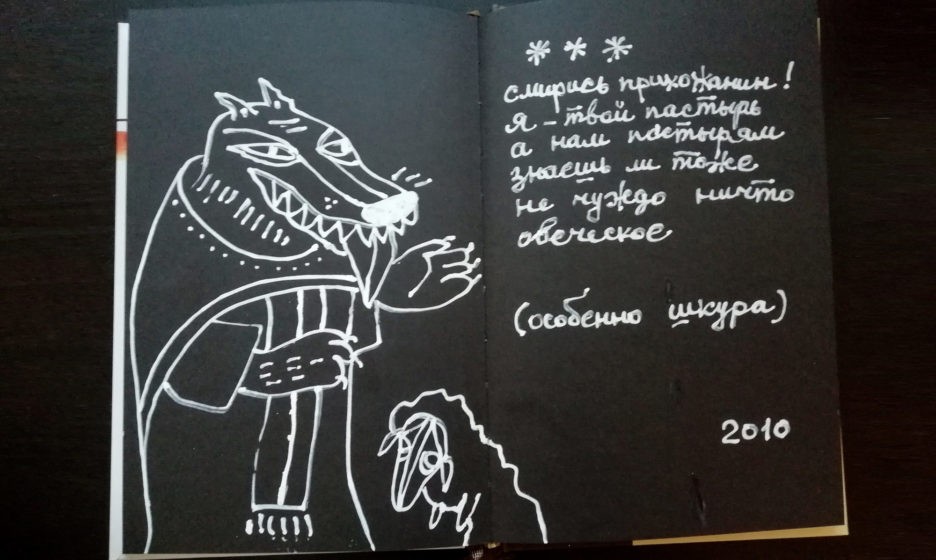 * * *
смирись прихожанин!
я - твой пастырь
а нам пастырям
знаешь ли тоже
не чуждо ничто
овеческое
(особенно шкура)
2010